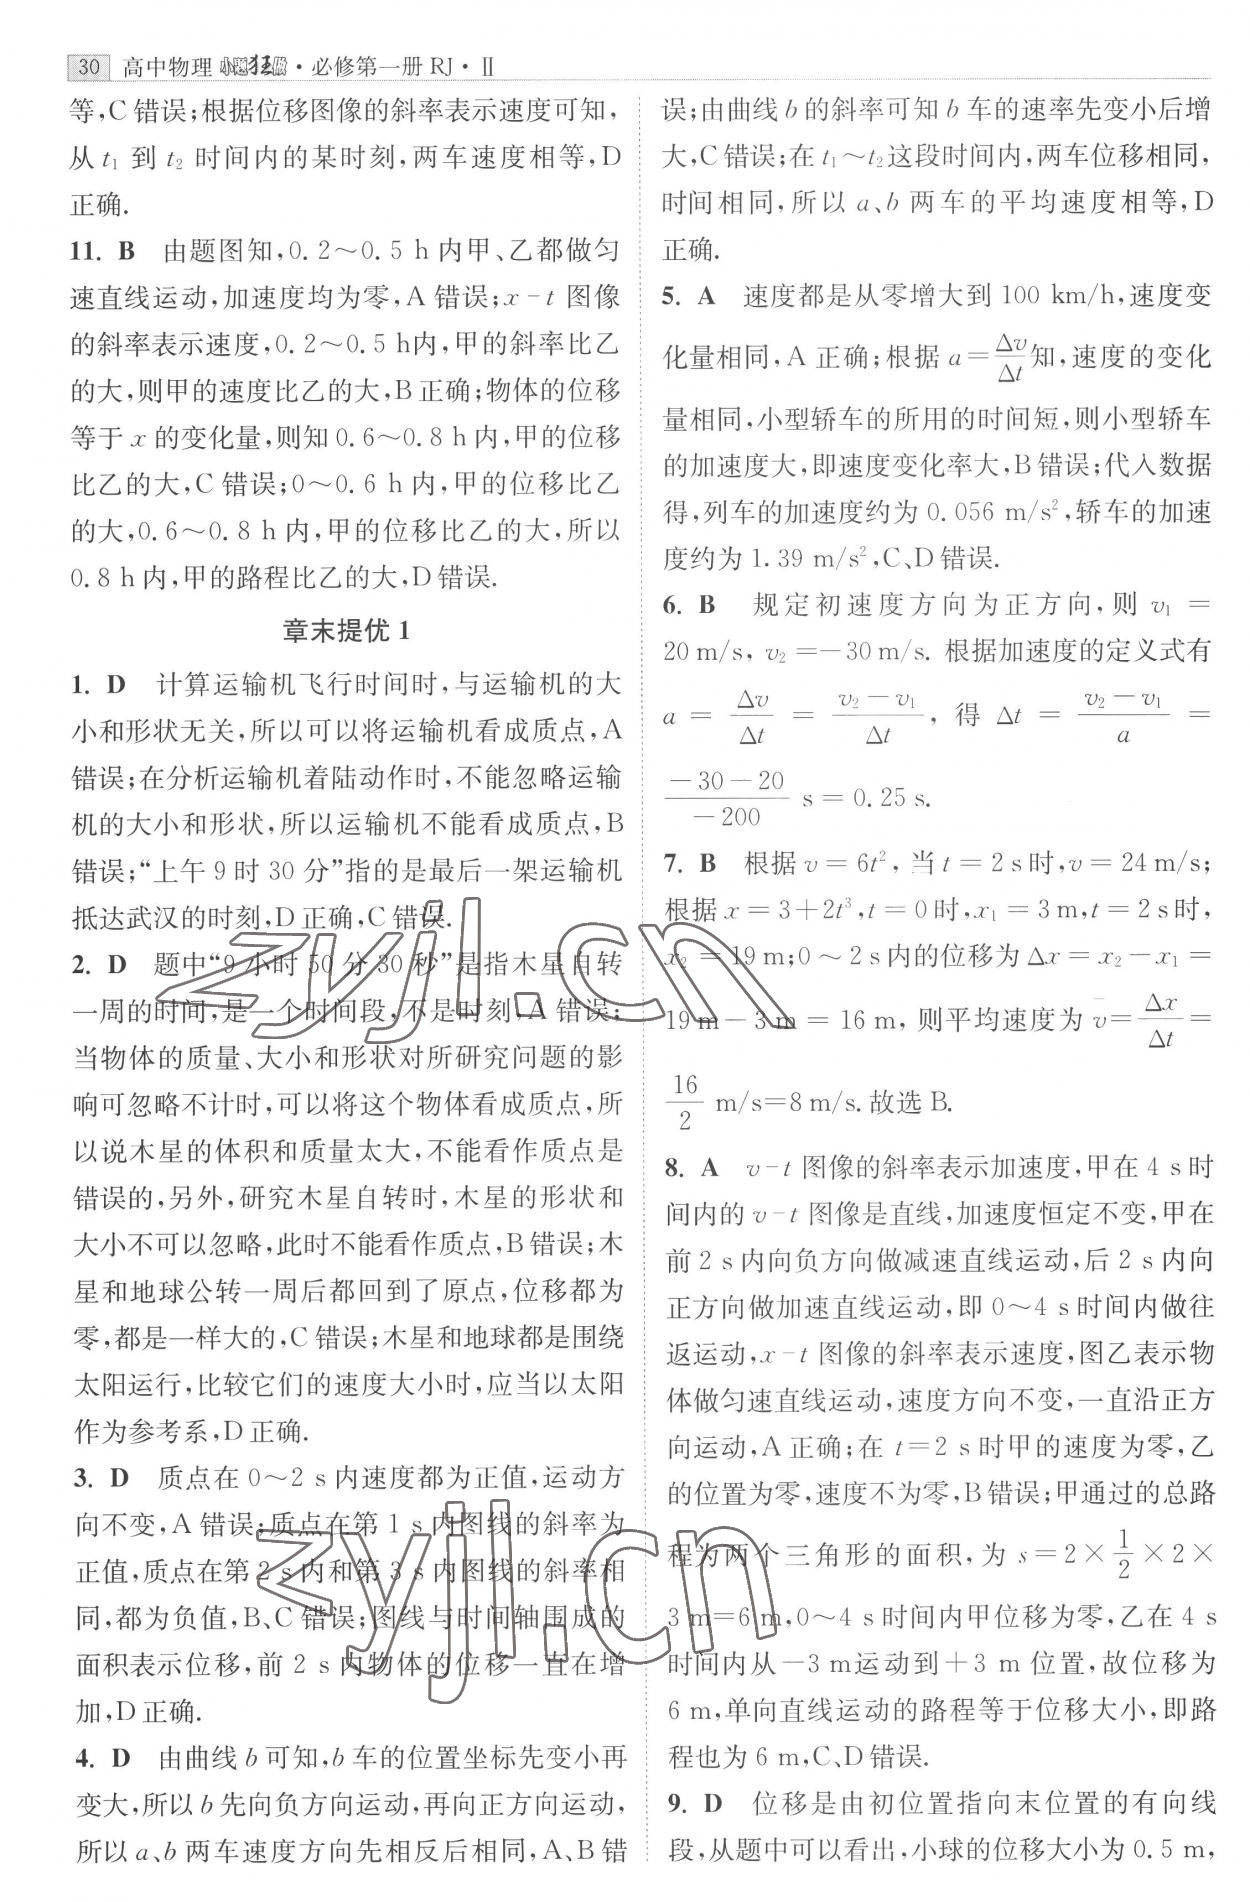 30 高中物理 小题狂做·必修第一册 RJ·Ⅱ
等,C 错误;根据位移图像的斜率表示速度可知,
从 t₁ 到 t₂ 时间内的某时刻,两车速度相等,D
正确.
11. B 由题图知,0.2～0.5 h 内甲、乙都做匀
速直线运动,加速度均为零,A 错误;x-t 图像
的斜率表示速度,0.2～0.5 h内,甲的斜率比乙
的大,则甲的速度比乙的大,B 正确;物体的位移
等于 x 的变化量,则知 0.6～0.8 h 内,甲的位移
比乙的大,C 错误;0～0.6 h 内,甲的位移比乙
的大,0.6～0.8 h 内,甲的位移比乙的大,所以
0.8 h内,甲的路程比乙的大,D 错误.
章末提优 1
1. D 计算运输机飞行时间时,与运输机的大
小和形状无关,所以可以将运输机看成质点,A
错误;在分析运输机着陆动作时,不能忽略运输
机的大小和形状,所以运输机不能看成质点,B
错误;“上午 9 时 30 分”指的是最后一架运输机
抵达武汉的时刻,D 正确,C 错误.
2. D 题中“9 小时 50 分 30 秒”是指木星自转
一周的时间,是一个时间段,不是时刻,A 错误;
当物体的质量、大小和形状对所研究问题的影
响可忽略不计时,可以将这个物体看成质点,所
以说木星的体积和质量太大,不能看作质点是
错误的,另外,研究木星自转时,木星的形状和
大小不可以忽略,此时不能看作质点,B错误;木
星和地球公转一周后都回到了原点,位移都为
零,都是一样大的,C 错误;木星和地球都是围绕
太阳运行,比较它们的速度大小时,应当以太阳
作为参考系,D 正确.
3. D 质点在 0～2 s 内速度都为正值,运动方
向不变,A 错误;质点在第 1 s 内图线的斜率为
正值,质点在第 2 s 内和第 3 s 内图线的斜率相
同,都为负值,B、C 错误;图线与时间轴围成的
面积表示位移,前 2 s 内物体的位移一直在增
加,D 正确.
4. D 由曲线 b 可知,b 车的位置坐标先变小再
变大,所以 b 先向负方向运动,再向正方向运动,
所以 a、b 两车速度方向先相反后相同,A、B 错
误;由曲线 b 的斜率可知 b 车的速率先变小后增
大,C 错误;在 t₁～t₂ 这段时间内,两车位移相同,
时间相同,所以 a、b 两车的平均速度相等,D
正确.
5. A 速度都是从零增大到 100 km/h,速度变
化量相同,A 正确;根据 a=Δv/Δt 知,速度的变化
量相同,小型轿车的所用的时间短,则小型轿车
的加速度大,即速度变化率大,B 错误;代入数据
得,列车的加速度约为 0.056 m/s²,轿车的加速
度约为 1.39 m/s²,C、D 错误.
6. B 规定初速度方向为正方向,则 v₁ =
20 m/s, v₂ =-30 m/s. 根据加速度的定义式有
a = Δv/Δt = (v₂-v₁)/Δt, 得 Δt = (v₂-v₁)/a =
(-30-20)/(-200) s = 0.25 s.
7. B 根据 v = 6t², 当 t = 2 s 时, v = 24 m/s;
根据 x = 3+2t³, t = 0 时, x₁ = 3 m, t = 2 s 时,
x₂ = 19 m;0 ～ 2 s 内的位移为 Δx = x₂-x₁ =
19 m-3 m = 16 m, 则平均速度为 v̄=Δx/Δt=
16/2 m/s=8 m/s. 故选 B.
8. A v-t 图像的斜率表示加速度,甲在 4 s 时
间内的 v-t 图像是直线,加速度恒定不变,甲在
前 2 s 内向负方向做减速直线运动,后 2 s 内向
正方向做加速直线运动,即 0～4 s 时间内做往
返运动,x-t 图像的斜率表示速度,图乙表示物
体做匀速直线运动,速度方向不变,一直沿正方
向运动,A 正确;在 t=2 s 时甲的速度为零,乙
的位置为零,速度不为零,B 错误;甲通过的总路
程为两个三角形的面积,为 s=2×1/2×2×
3 m=6 m,0～4 s 时间内甲位移为零,乙在 4 s
时间内从-3 m运动到+3 m 位置,故位移为
6 m,单向直线运动的路程等于位移大小,即路
程也为 6 m,C、D 错误.
9. D 位移是由初位置指向末位置的有向线
段,从题中可以看出,小球的位移大小为 0.5 m,
zyjl.cn
zyjl.cn